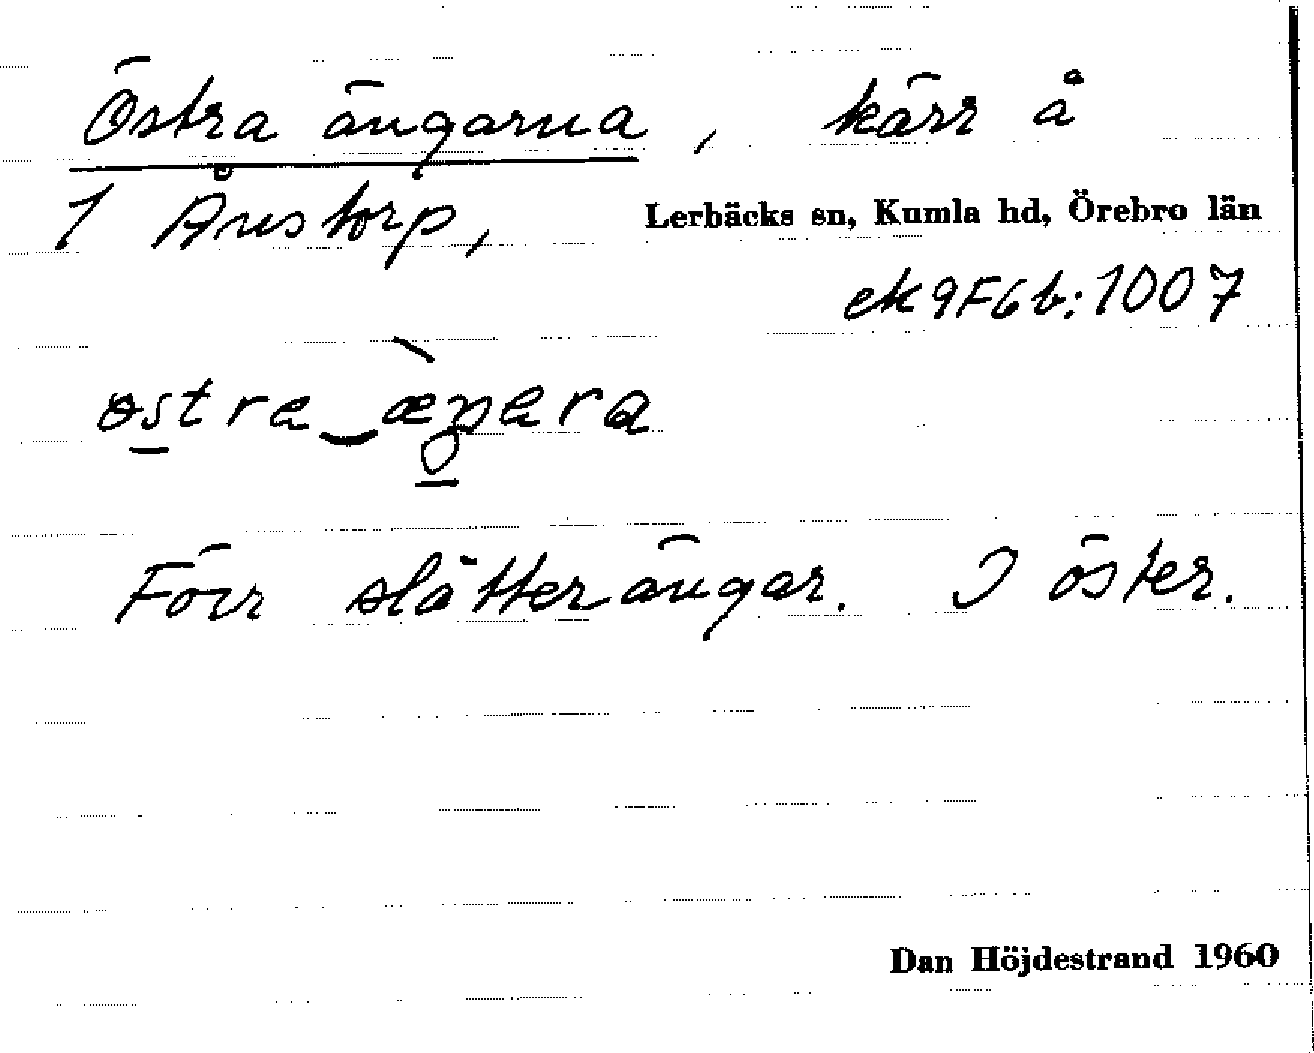 Östra ängarna, kärr å
1 Ånstorp, Lerbäcks sn, Kumla hd, Örebro län
ek 9F6b:1007
östra‿æ̀ŋara
Förr slåtterängar. I öster.
Dan Höjdestrand 1960